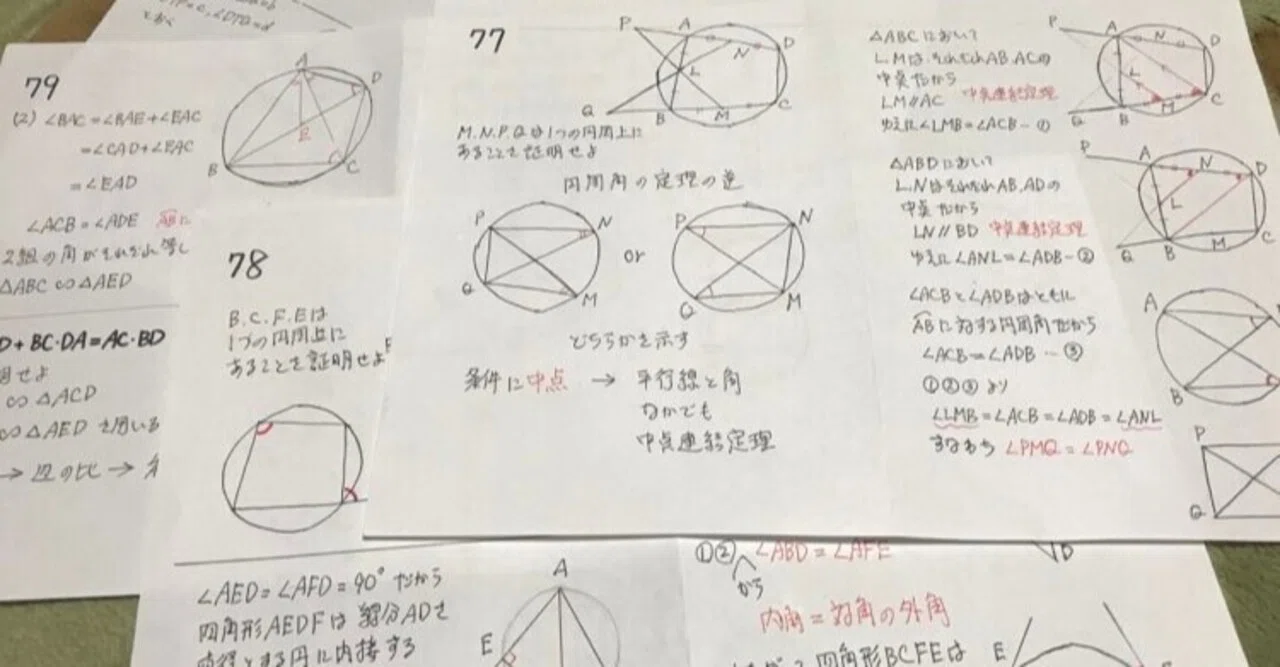 79
(2) ∠BAC=∠BAE+∠EAC
=∠CAD+∠EAC
=∠EAD
∠ACB=∠ADE ABに
2組の角がそれぞれ等し
△ABC∽△AED
D+BC·DA=AC·BD
せよ
∽△ACD
∽△AED を用いる
→ 辺の比 →
A
D
E
B
C
78
B.C.F.Eは
1つの円周上に
あることを証明せよ
77
P
A
N
D
L
Q
B
M
C
M.N.P.Qは1つの円周上に
あることを証明せよ
円周角の定理の逆
P
N
Q
M
or
P
N
Q
M
どちらかを示す
条件に中点 → 平行線と角
なかでも
中点連結定理
△ABCにおいて
L.Mはそれぞれ AB.ACの
中点だから
LM∥AC 中点連結定理
ゆえに∠LMB=∠ACB-①
P
A
N
D
L
M
C
Q
B
△ABDにおいて
L.NはそれぞれAB.ADの
中点だから
LN∥BD 中点連結定理
ゆえに∠ANL=∠ADB-②
P
A
N
D
L
M
C
Q
B
∠ACBと∠ADBはともに
ABに対する円周角だから
∠ACB=∠ADB…③
①②③より
∠LMB=∠ACB=∠ADB=∠ANL
すなわち ∠PMQ=∠PNQ
A
B
P
Q
∠AED=∠AFD=90°だから
四角形AEDFは線分ADを
直径とする円に内接する
A
E
①② ∠ABD=∠AFE
から
内角=対角の外角
四角形BCFEは
E
D